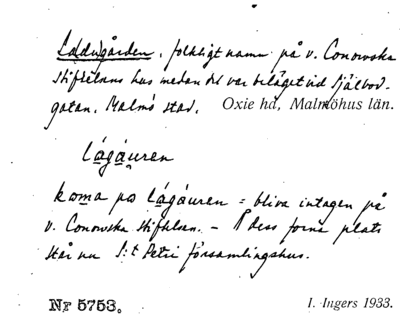 Laddugården, folkligt namn på v. Conowska
stiftelsens hus medan det var beläget vid Själbod-
gatan. Malmö stad. Oxie hd, Malmöhus län.
lágáuren
koma po lágáuren = bliva intagen på
v. Conowska stiftelsen. – På dess forna plats
står nu S:t Petri församlingshus.
Nr 5753. I. Ingers 1933.